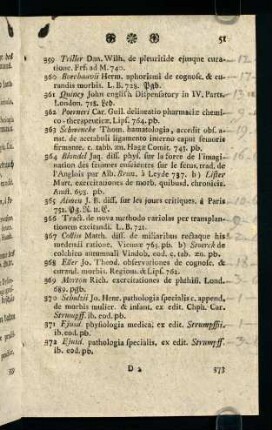 51
359 Triller Dan. Wilh. de pleuritide ejusque curatione. Frf. ad M. 740.
360 Boerhaavii Herm. aphorismi de cognosc. & curandis morbis. L. B. 728. Pgb.
361 Quincy John english Dispensatory in IV. Parts. London. 718. Leb.
362 Poerneri Car. Guil. delineatio pharmaciæ chemico-therapeuticæ. Lips. 764. pb.
363 Schwencke Thom. hæmatologia, accessit obs. anat. de acetabuli ligamento interno caput femoris firmante, c. tabb. æn. Hagæ Comit. 743. pb.
364 Blondel Jaq. diss. phys. sur la force de l'imagination des femmes enceintes sur le fetus, trad. de l'Anglois par Alb. Brun. à Leyde 737. b) Lister Mart. exercitationes de morb. quibusd. chronicis. Amst. 698. pb.
365 Aimen J. B. diss. sur les jours critiques. á Paris 752.
366 Tract. de nova methodo variolas per transplantationem excitandi. L. B. 721.
367 Collin Matth. diss. de miliaribus rectaque his medendi ratione. Viennæ 765. pb. b) Stoerck de colchico autumnali Vindob. eod. c. tab. æn. pb.
368 Eller Jo. Theod. observationes de cognosc. & curand. morbis. Regiom. & Lips. 762.
369 Morton Rich. exercitationes de phthisi. Lond. 689. pgb.
370 Schulzii Jo. Henr. pathologia specialis c. append. de morbis mulier. & infant. ex edit. Chph. Car. Strumpff. ib. eod. pb.
371 Ejusd. physiologia medica, ex edit. Strumpffii. ib. eod. pb.
372 Ejusd. pathologia specialis, ex edit. Strumpff. ib. eod. pb.
D 2
373